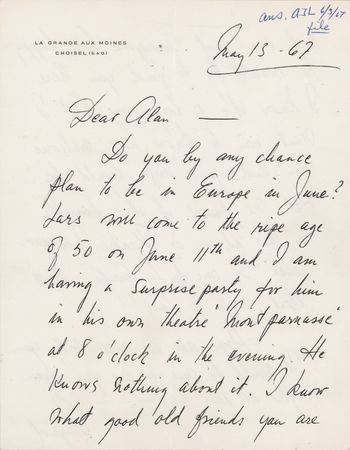 ans. AJL 6/3/67
file
LA GRANGE AUX MOINES
CHOISEL (S.&O.)
May 13 - 67
Dear Alan —
Do you by any chance
plan to be in Europe in June?
Lars will come to the ripe age
of 50 on June 11th and I am
having a surprise party for him
in his own theatre "Montparnasse"
at 8 o'clock in the evening. He
knows nothing about it. I know
what good old friends you are